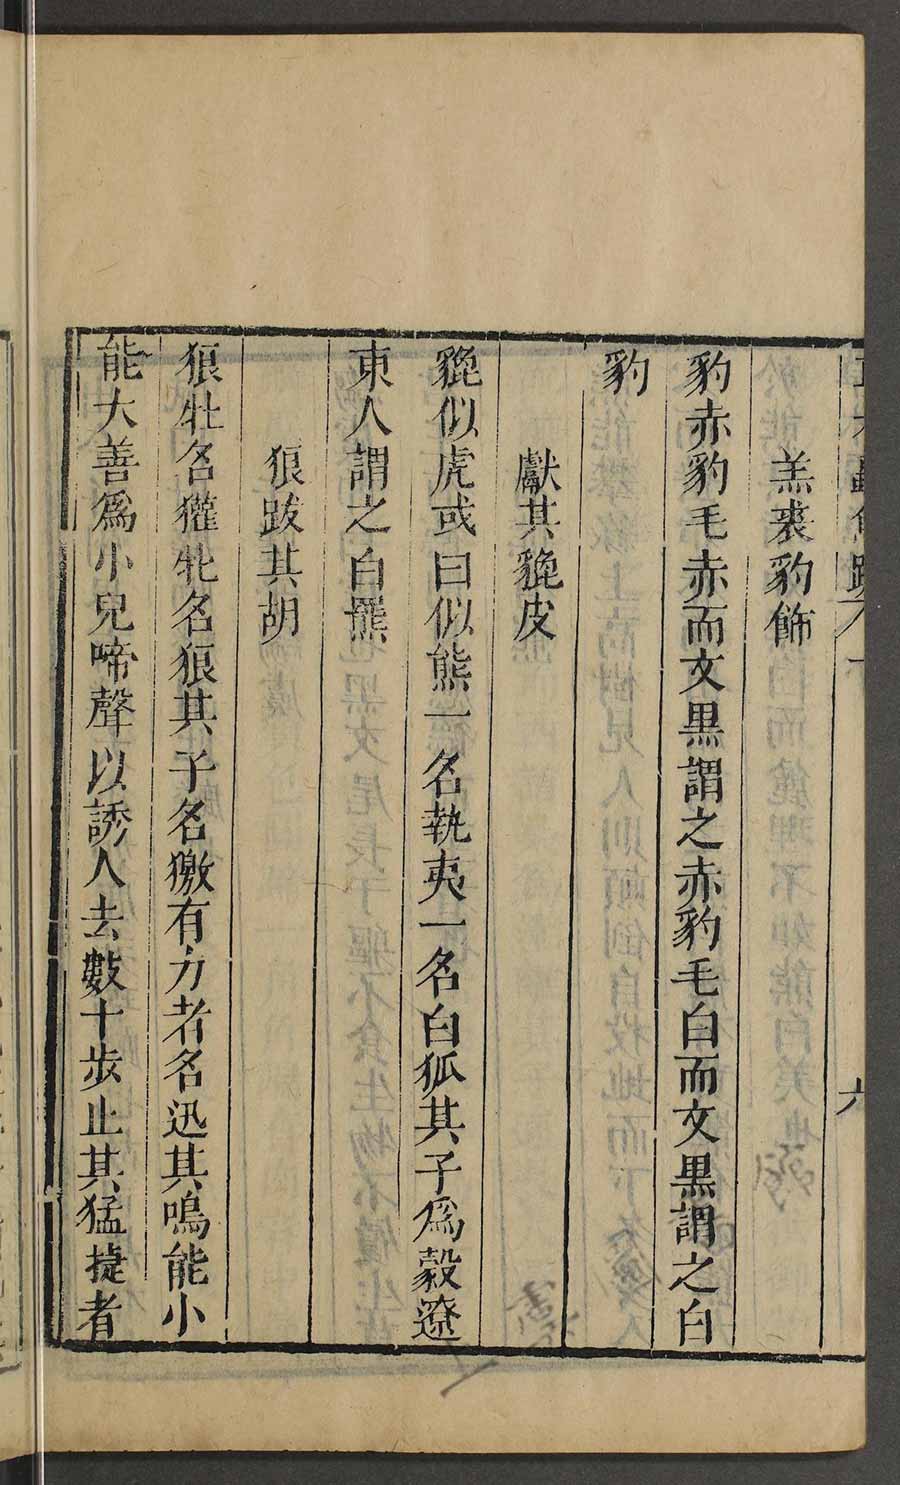 羔裘豹飾
豹赤豹毛赤而文黒謂之赤豹毛白而文黒謂之白
豹
獻其貔皮
貔似虎或曰似熊一名執夷一名白狐其子爲豰遼
東人謂之白羆
狼跋其胡
狼牡名獾牝名狼其子名獥有力者名迅其鳴能小
能大善爲小兒啼聲以誘人去數十步止其猛捷者
六